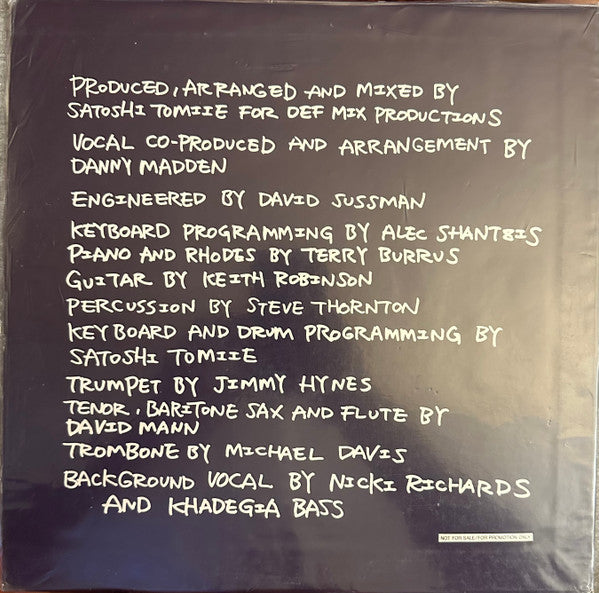 PRODUCED, ARRANGED AND MIXED BY
SATOSHI TOMIIE FOR DEF MIX PRODUCTIONS
VOCAL CO-PRODUCED AND ARRANGEMENT BY
DANNY MADDEN
ENGINEERED BY DAVID SUSSMAN
KEYBOARD PROGRAMMING BY ALEC SHANTZIS
PIANO AND RHODES BY TERRY BURRUS
GUITAR BY KEITH ROBINSON
PERCUSSION BY STEVE THORNTON
KEYBOARD AND DRUM PROGRAMMING BY
SATOSHI TOMIIE
TRUMPET BY JIMMY HYNES
TENOR, BARITONE SAX AND FLUTE BY
DAVID MANN
TROMBONE BY MICHAEL DAVIS
BACKGROUND VOCAL BY NICKI RICHARDS
AND KHADEGIA BASS
NOT FOR SALE/FOR PROMOTION ONLY